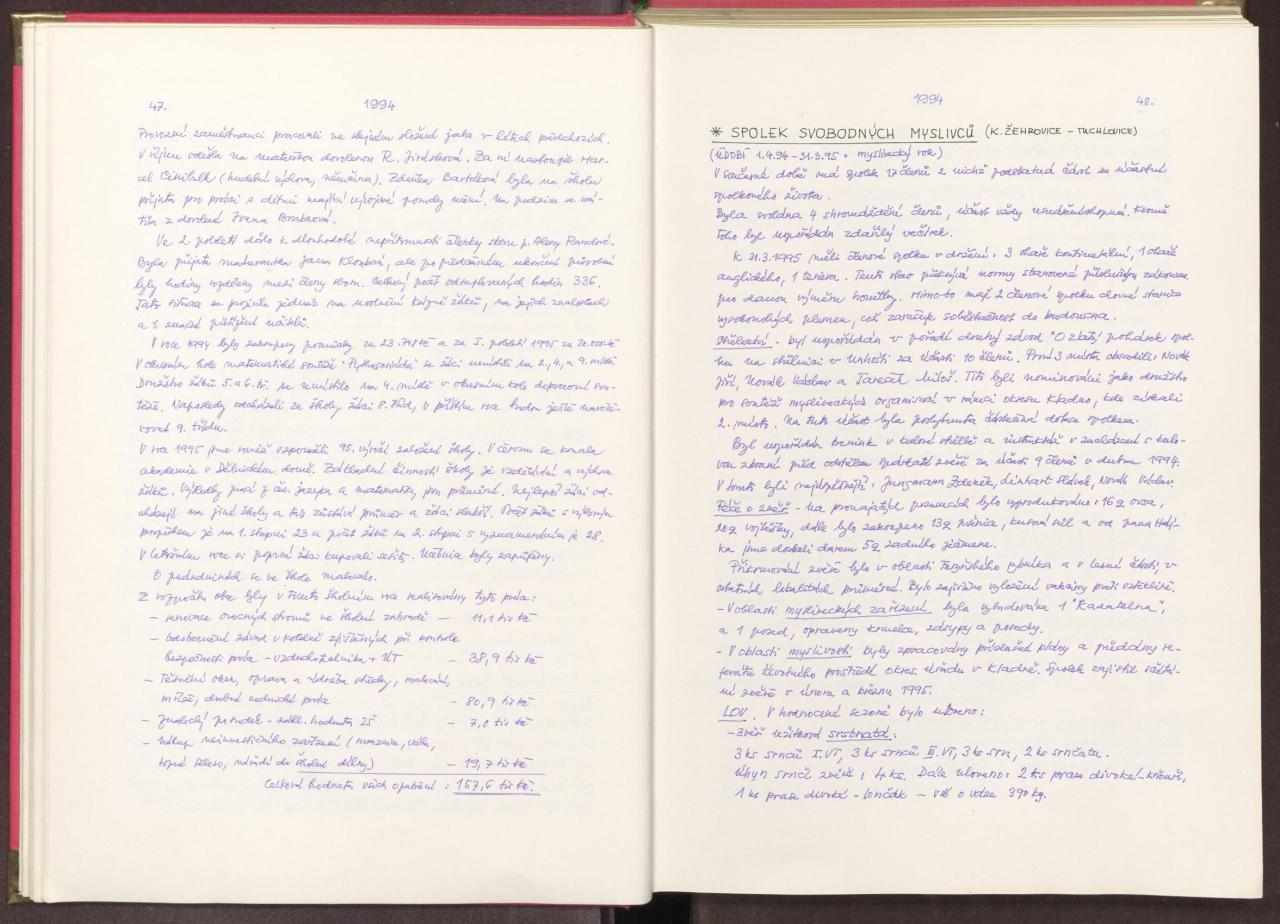 47. 1994
Provozní zaměstnanci pracovali ve stejném složení jako v létech předchozích.
V říjnu odešla na mateřskou dovolenou R. Jirásková. Za ní nastoupil Mar-
cel Cibulk (hudební výchova, němčina). Zdeňka Bartáková byla na školu
přijata pro práci s dětmi mající vývojové poruchy učení. Na podzim se vrá-
tila z dovolené Ivana
Ve 2. pololetí došlo k dlouhodobé nepřítomnosti členky sboru p. Aleny
Byla přijata maturantka Jana, ale po předčasném ukončení působení
byly hodiny rozděleny mezi členy sboru. Celkový počet odsuplovaných hodin 336.
Tato situace se projevila jednak na uvolnění kázně žáků, na jejich znalostech
a i značné přetížení učitelů.
V roce 1994 byly zakoupeny pomůcky za 23. a za I. pololetí 1995 za 20.
V okresním kole matematické soutěže "Pythagoriáda" se žáci umístili na 2., 4., a 9. místě.
Družstvo žáků 5. a 6. tř. se umístilo na 4. místě v okresním kole dopravní sou-
těže. Naposledy odcházeli ze školy žáci 8. tříd, v příštím roce budou ještě navště-
vovat 9. třídu.
V roce 1995 jsme rovněž vzpomněli 95. výročí založení školy. V červnu se konala
akademie v Dělnickém domě. Základní činností školy je vzdělávání a výchova
žáků. Výsledky prací z čes. jazyka a matematiky jsou průměrné. Nejlepší žáci od-
cházejí na jiné školy a tak zůstává průměr a žáci slabší. Počet žáků s výborným
prospěchem je na 1. stupni 23 a počet žáků na 2. stupni s vyznamenáním je 28.
V letošním roce si poprvé žáci kupovali sešity. Učebnice byly zapůjčeny.
O prázdninách se ve škole malovalo.
Z rozpočtu obce byly v tomto školním roce realizovány tyto práce:
– renovace ovocných stromů ve školní zahradě — 11,1 tis kč
– odstranění závad v kotelně zjištěných při kontrole
bezpečnosti práce – vzduchotechnika + ÚT — 38,9 tis kč
– Těsnění oken, oprava a údržba střechy, malování,
mříže, drobné zednické práce — 80,9 tis kč
– Znalecký posudek – zákl. hodnota ZŠ — 7,0 tis kč
– nákup neinvestičního zařízení (mraznice, váha,
topné těleso, nářadí do školní dílny) — 19,7 tis kč
Celková hodnota všech opatření : 157,6 tis kč.
1994 48.
* SPOLEK SVOBODNÝCH MYSLIVCŮ (K. ŽEHROVICE – TUCHLOVICE)
(ÚDOBÍ 1.4.94 – 31.3.95 = myslivecký rok)
V současné době má spolek 17 členů z nichž podstatná část se účastní
spolkového života.
Byla svolána 4 shromáždění členů, účast vždy usnášeníschopná. Kromě
toho byl uspořádán zdařilý večírek.
K 31.3.1995 měli členové spolku v držení: 3 ohaře kontinentální, 1 ohaře
anglického, 1 teriera. Tento stav překrývá normy stanovené příslušným zákonem
pro danou výměru honitby. Mimo to mají 2 členové spolku chovné stanice
vysokonohých plemen, což zaručuje soběstačnost do budoucna.
Střelectví. byl uspořádán v pořadí druhý závod "O zlatý pohárek spol-
ku na střelnici v Unhošti za účasti 10 členů. První 3 místa obsadili: Novák
Jiří, Novák Václav a Tareček Miloš. Tito byli nominováni jako družstvo
pro soutěž mysliveckých organisací v rámci okresu Kladno, kde získali
2. místo. Na tuto účast byla poskytnuta částečná dotace spolkem.
Byl uspořádán trénink v kulové střelbě a instruktáž v zacházení s kulo-
vou zbraní před odstřelem spárkaté zvěře za účasti 9 členů v dubnu 1994.
V tomto byli nejúspěšnější: Jungmann Zdeněk, Linhart Slávek, Novák Václav.
Péče o zvěř – Na pronajatých pozemcích bylo vyprodukováno: 16q ovsa,
20q vojtěšky, dále bylo zakoupeno 13q jádra, kusová sůl a od pana Háj-
ka jsme dostali darem 5q zadního ječmene.
Přikrmování zvěře bylo v oblasti rybníka a v lesní části, v
ostatních lokalitách průměrné. Bylo zajištěno vyložení vakcíny proti vzteklině.
– V oblasti mysliveckých zařízení byla vybudována 1 "Kazatelna",
a 1 posed, opraveny krmelce, zásypy a posedy.
– V oblasti myslivosti byly zpracovány příslušné plány a předány re-
ferátu životního prostředí okres. úřadu v Kladně. Spolek zajistil sčítá-
ní zvěře v únoru a březnu 1995.
LOV. V hodnocené sezoně bylo uloveno:
– Zvěř užitková srstnatá:
3 ks srnců I.VT, 3 ks srnců III.VT, 3 ks srn, 2 ks srnčata.
Úhyn srnčí zvěře: 4 ks. Dále uloveno: 2 ks prase divoké – kňour,
1 ks prase divoké – lončák – vše o váze 390 kg.